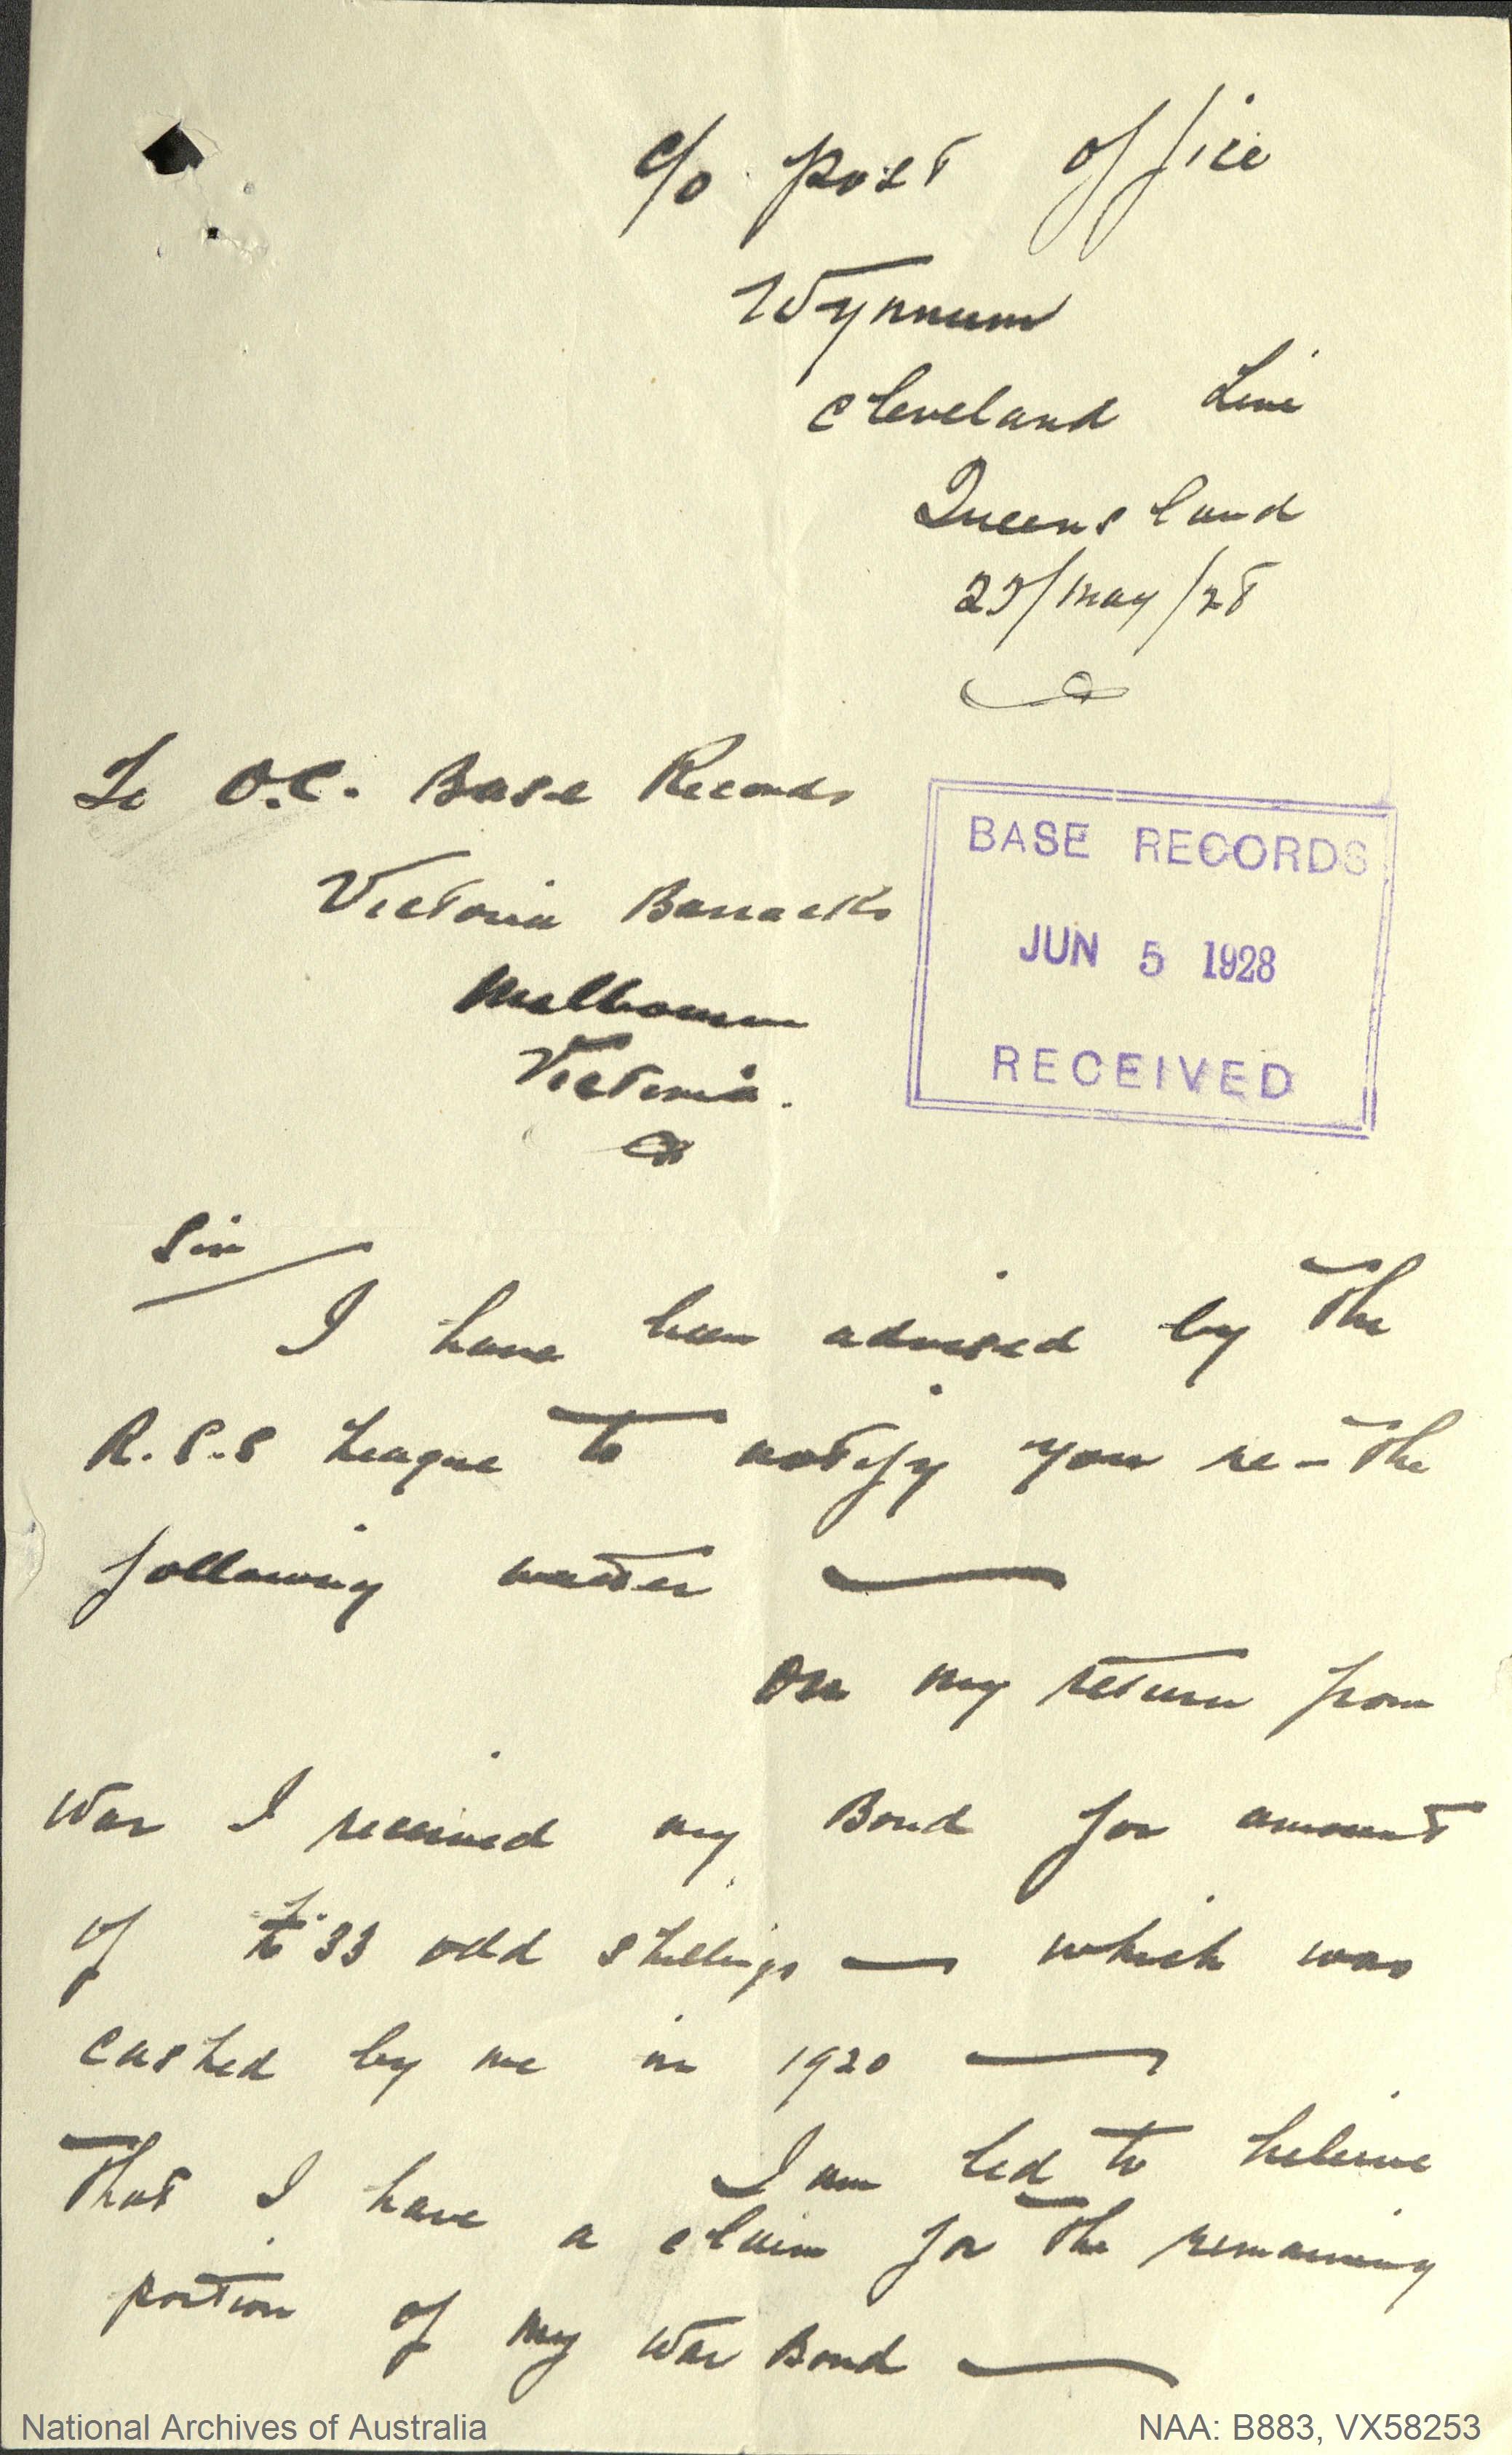 c/o Post Office
Wynnum
Cleveland Line
Queensland
/May/28
To O.C. Base Records
Victoria Barracks
Melbourne
Victoria.
BASE RECORDS
JUN 5 1928
RECEIVED
Sir
I have been advised by the
R.S.S League to notify you re - the
following matter —
On my return from
War I received my Bond for amount
of £33 odd shillings — which was
cashed by me in 1920 —
I am led to beleive
that I have a claim for the remaining
portion of my War Bond —
National Archives of Australia
NAA: B883, VX58253